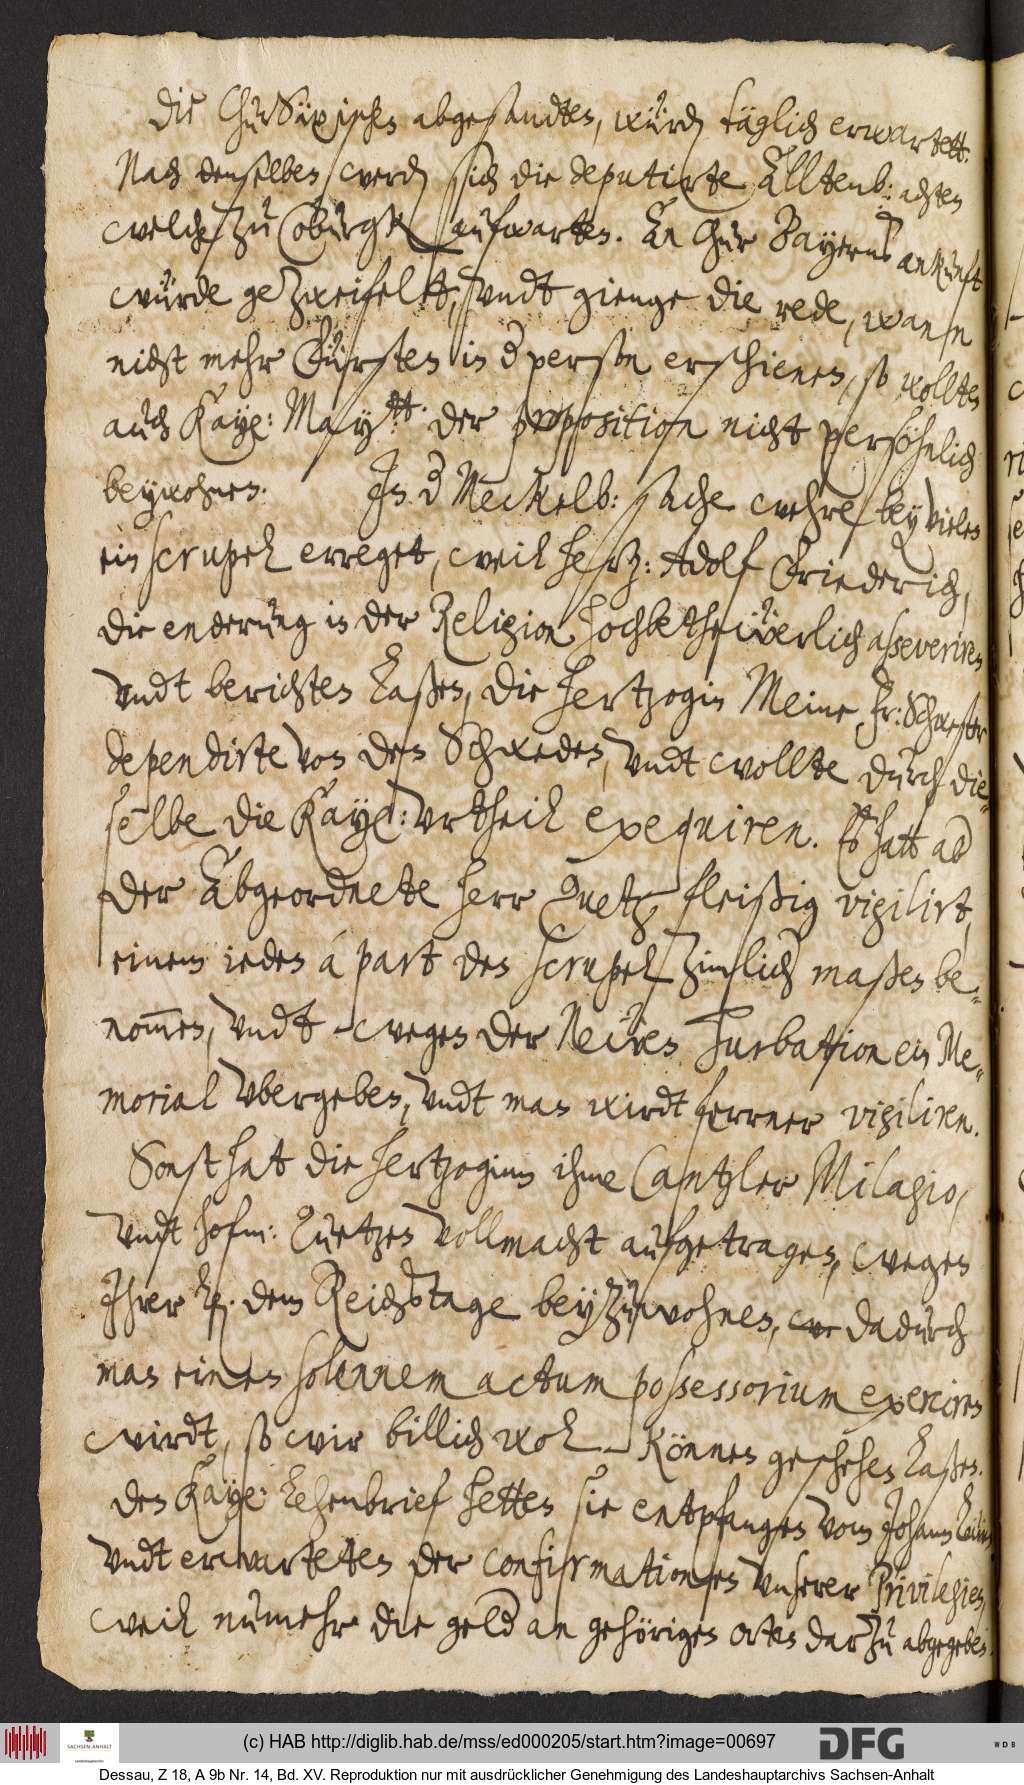 Die ChurSäxischen abgesandten, würden täglich erwartett.
Nach denselben werden sich die deputirte Älltenb: achten
welche zu Coburgk aufwarten. An Chur Bayerns ankunft
würde gezweifeltt, undt gienge die rede, wann
nicht mehr Fürsten in der person erschienen, so wollten
auch Kayß: Maytt. der proposition nicht persöhnlich
beywohnen. In der Meckelb: sache wehre bey vielen
ein scrupel erreget, weil hertz: Adolf Friederich,
die enderung in der Religion hochbethewerlich asseveriren
undt berichten laßen, die hertzogin Meine Fr: Schwester
dependirte von den Schweden, undt wollte durch die-
selbe die Kayß: Urtheil exequiren. Es hatt aber
der Abgeordnete herr fleißig vigilirt,
einem ieden à part den scrupel zimlicher maßen be-
nom̅en, undt wegen der Newen Turbattion ein Me-
morial ubergeben, undt man wirdt ferrner vigiliren.
Sonst hat die hertzoginn ihme Cantzler Milagio,
undt hofm: vollmacht aufgetragen, wegen
Ihrer Ld. dem Reichstage beyzuwohnen, dadurch
man einen solennem actum possessorium exerciren
wirdt, so wir billich wol können geschehen laßen.
Den Kayß: Lehenbrief hetten sie entpfangen vom Johann
undt erwarteten der confirmationes unserer Privilegien,
weil numehr die gelder an gehörigen orten darzu abgegeben
(c) HAB http://diglib.hab.de/mss/ed000205/start.htm?image=00697
SACHSEN-ANHALT
DFG
WDB
Dessau, Z 18, A 9b Nr. 14, Bd. XV. Reproduktion nur mit ausdrücklicher Genehmigung des Landeshauptarchivs Sachsen-Anhalt